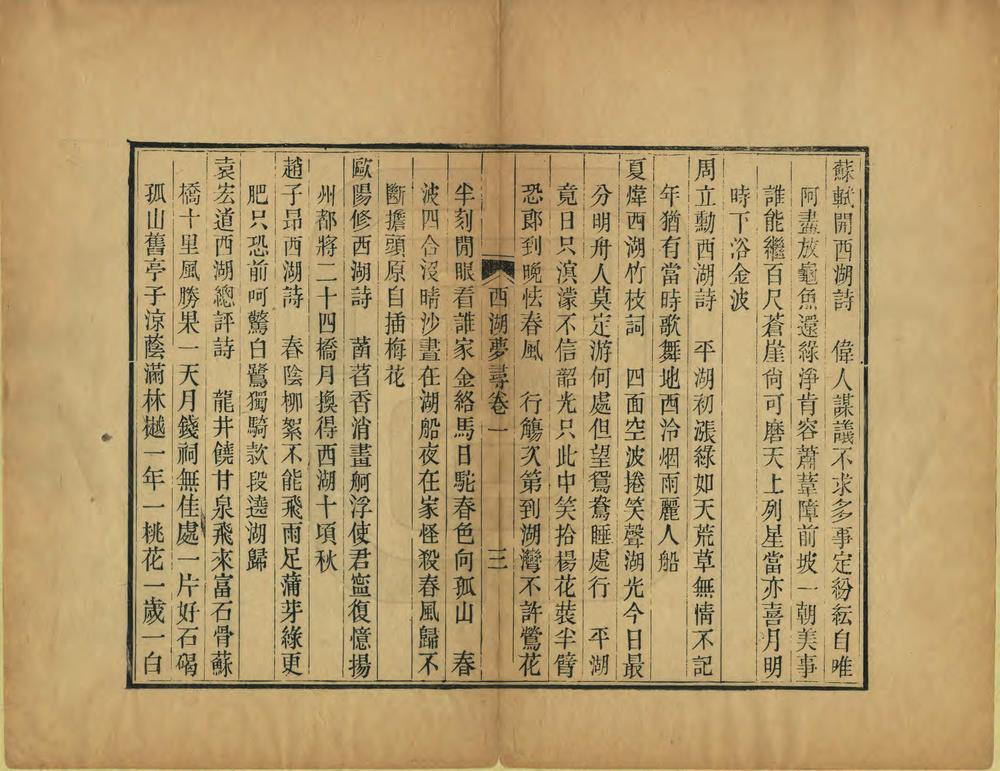 蘇軾開西湖詩　偉人謀議不求多事定紛紜自唯
阿盡放龜魚還綠淨肯容蕭葦障前坡一朝美事
誰能繼百尺蒼崖尙可磨天上列星當亦喜月明
時下浴金波
周立勳西湖詩　平湖初漲綠如天荒草無情不記
年猶有當時歌舞地西泠烟雨麗人船
夏煒西湖竹枝詞　四面空波捲笑聲湖光今日最
分明舟人莫定游何處但望鴛鴦睡處行　平湖
竟日只溟濛不信韶光只此中笑拾楊花裝半臂
恐郎到晚怯春風　行觴次第到湖灣不許鶯花
西湖夢尋卷一　三
半刻閒眼看誰家金絡馬日駝春色向孤山　春
波四合沒晴沙晝在湖船夜在家怪殺春風歸不
斷擔頭原自插梅花
歐陽修西湖詩　菡萏香消畫舸浮使君寍復憶揚
州都將二十四橋月換得西湖十頃秋
趙子昂西湖詩　春陰柳絮不能飛雨足蒲芽綠更
肥只恐前呵驚白鷺獨騎款段遶湖歸
袁宏道西湖總評詩　龍井饒甘泉飛來富石骨蘇
橋十里風勝果一天月錢祠無佳處一片好石碣
孤山舊亭子涼蔭滿林樾一年一桃花一歲一白